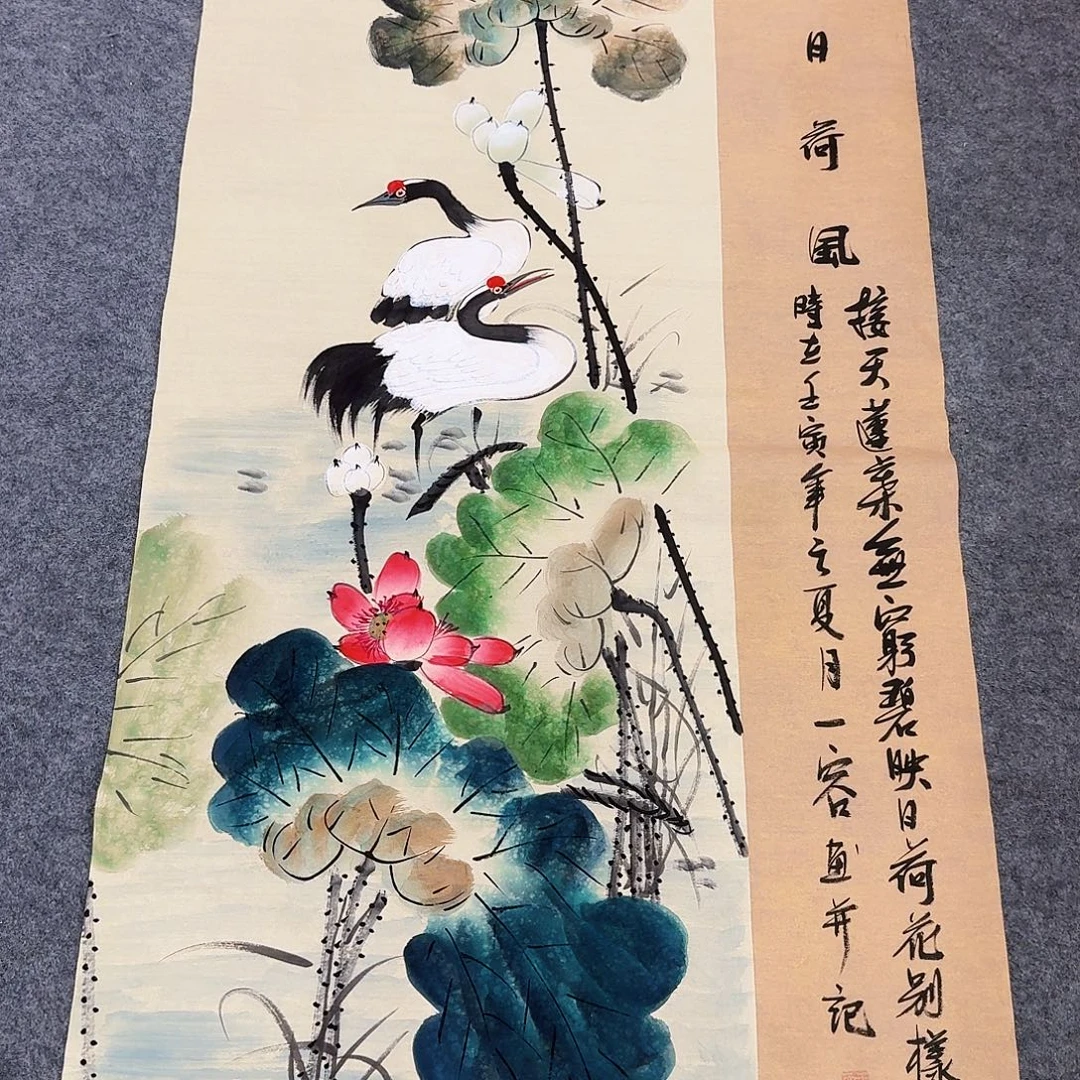 日荷風
接天蓮葉無窮碧映日荷花別樣
時在壬寅年之夏月一容画并記